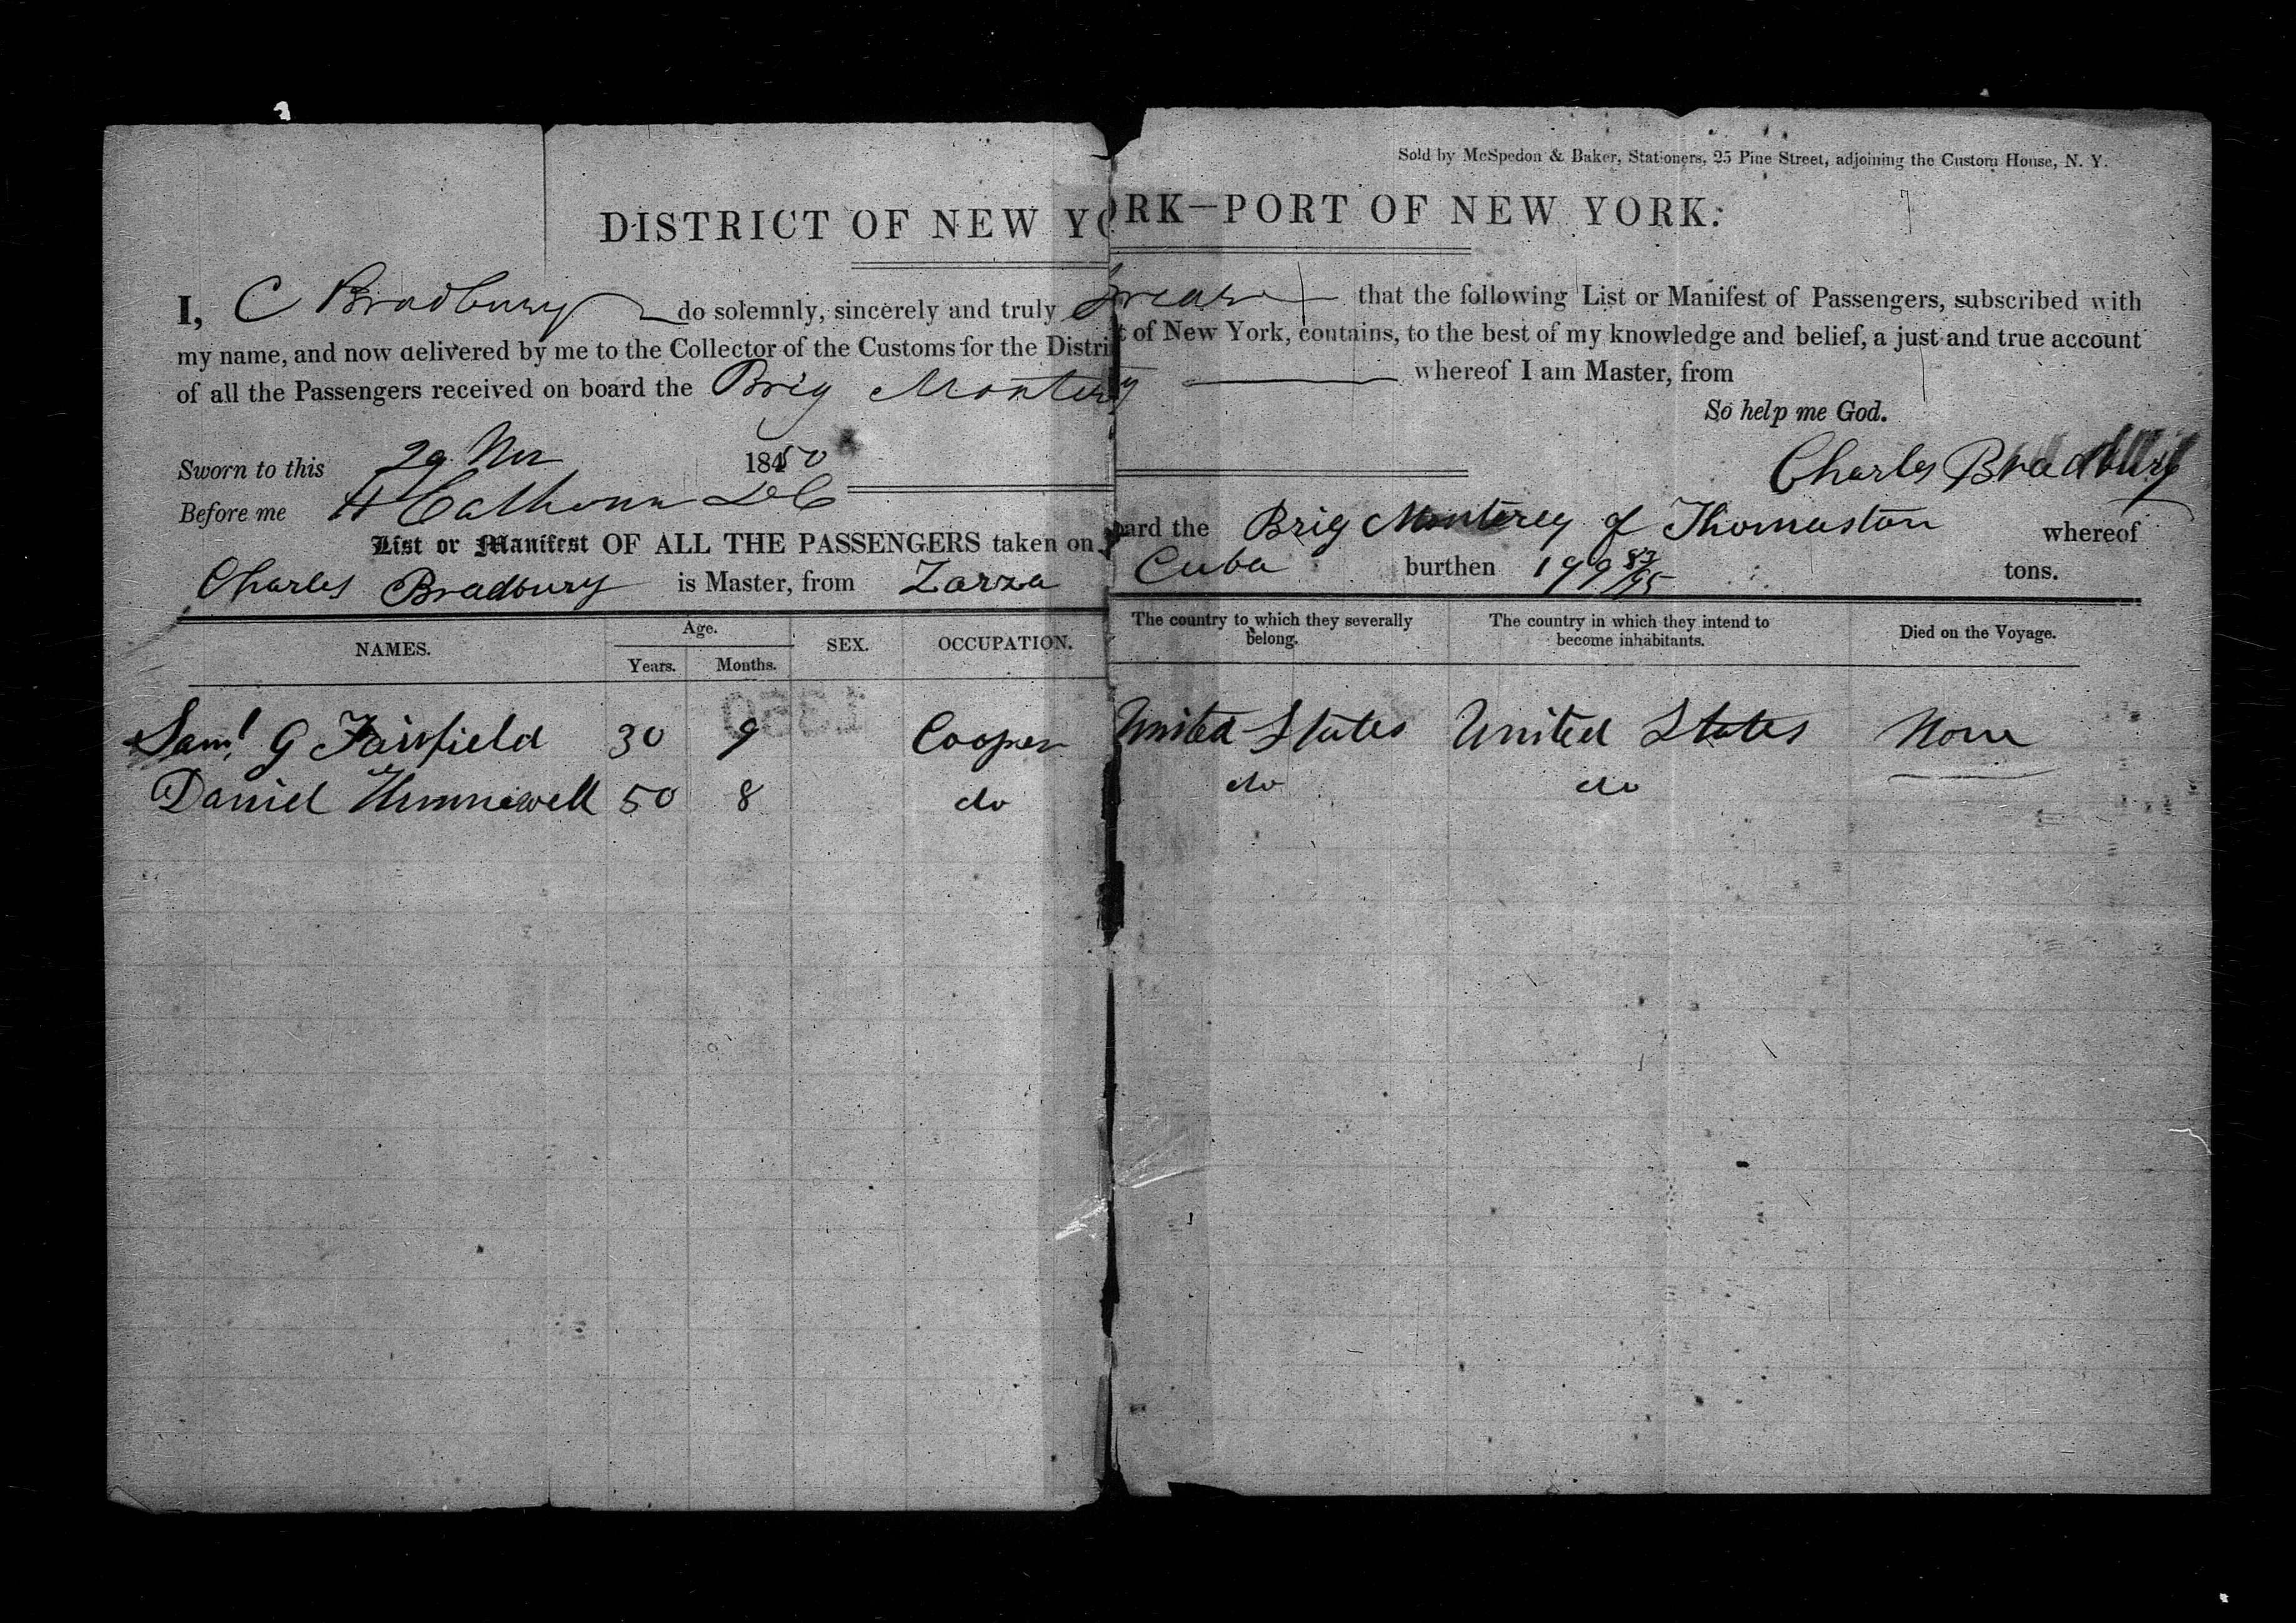 Sold by McSpedon & Baker, Stationers, 25 Pine Street, adjoining the Custom House, N. Y.
DISTRICT OF NEW YORK—PORT OF NEW YORK.
I, C Bradbury do solemnly, sincerely and truly swear that the following List or Manifest of Passengers, subscribed with
my name, and now delivered by me to the Collector of the Customs for the District of New York, contains, to the best of my knowledge and belief, a just and true account
of all the Passengers received on board the Brig Monterey whereof I am Master, from
So help me God.
Sworn to this 29 Nov 1850
Charles Bradbury
Before me H Calhoun D C
List or Manifest OF ALL THE PASSENGERS taken on board the Brig Monterey of Thomaston whereof
Charles Bradbury is Master, from Zarza Cuba burthen 199 83/95 tons.
NAMES. Age. SEX. OCCUPATION. The country to which they severally belong. The country in which they intend to become inhabitants. Died on the Voyage.
Years. Months.
Saml G Fairfield 30 9 Cooper United States United States None
Daniel Hunnewell 50 8 do do do